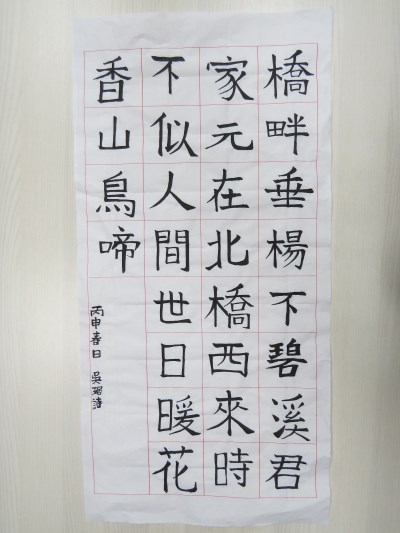 橋畔垂楊下碧溪君
家元在北橋西來時
不似人間世日暖花
香山鳥啼
丙申春日 吳